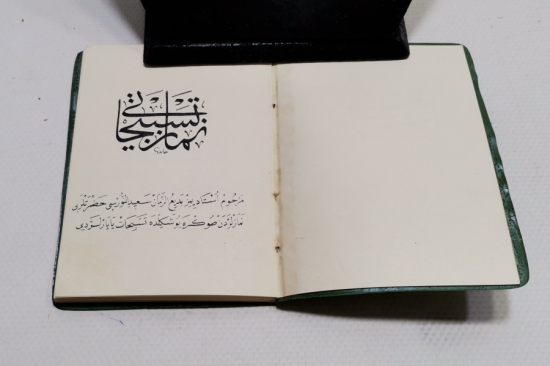 نماز تسبيحاتى
مرحوم استاديمز بديع الزمان سعيد النورسى حضرتلرى
نمازلردن صوكره بو شكلده تسبيحات ياپارلردى